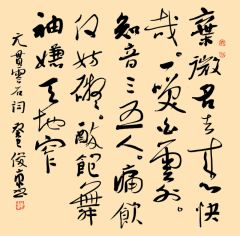 棄微名去来心快
哉一笑白云外
知音三五人痛飲
何妨礙醉袍舞
袖嫌天地窄
元貫雲石詞 俊